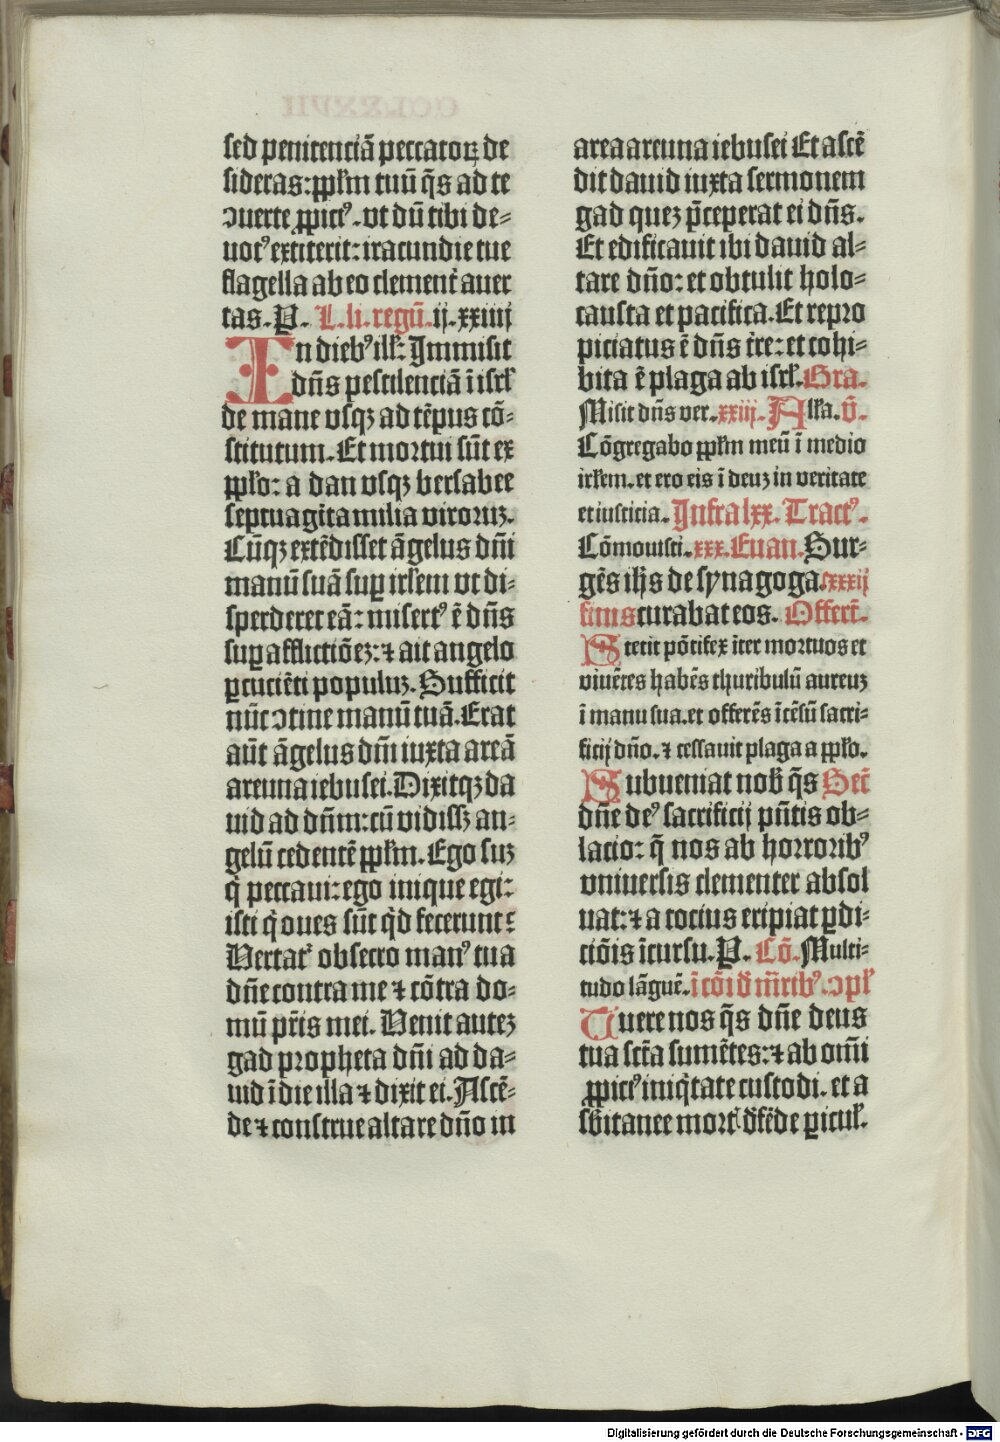 sed penitenciã peccatoꝝ de
sideras: ꝓpłm tuũ q̃s ad te
ɔuerte ꝓpiciꝰ. vt dũ tibi de⸗
uotꝰ extiterit: iracundie tue
flagella ab eo clement̃ auer
tas. P. L. li. regũ. ij. xxiiij
In diebꝰ illł: Jmmisit
dñs pestilenciã ĩ isrł
de mane vsqꝫ ad tẽpus cõ⸗
stitutum. Et mortui sũt ex
ꝓpło: a dan vsqꝫ bersabee
septuagĩta milia viroruꝫ.
Cũqꝫ extẽdisset ãgelus dñi
manũ suã suꝑ irłem vt di⸗
sperderet eã: misertꝰ ẽ dñs
suꝑ afflictiõeꝫ: ⁊ ait angelo
ꝑcuciẽti populuꝫ. Sufficit
nũc ɔtine manũ tuã. Erat
aũt ãgelus dñi iuxta areã
areuna iebusei. Dixitqꝫ da
uid ad dñm: cũ vidissꝫ an⸗
gelũ cedentẽ ꝓpłm. Ego suꝫ
q̇ peccaui: ego inique egi:
isti q̇ oues sũt q̇d fecerunt:
Vertat̃ obsecro manꝰ tua
dñe contra me ⁊ cõtra do⸗
mũ pr̃is mei. Venit auteꝫ
gad propheta dñi ad da⸗
uid ĩ die illa ⁊ dixit ei. Ascẽ⸗
de ⁊ construe altare dño in
area areuna iebusei Et ascẽ
dit dauid iuxta sermonem
gad queꝫ p̃ceperat ei dñs.
Et edificauit ibi dauid al⸗
tare dño: et obtulit holo⸗
causta et pacifica. Et repro
piciatus ẽ dñs t̃re: et cohi⸗
bita ẽ plaga ab isrł. Gra.
Misit dñs ver. xxiij. Alła. v̊.
Cõgregabo ꝓpłm meũ ĩ medio
irłem. et ero eis ĩ deuꝫ in veritate
et iusticia. Jnfra lxx. Tractꝰ.
Cõmouisti. xxx. Euan. Sur⸗
gẽs ih̃s de synagoga. cxxxij
finis curabat eos. Offert̃.
Stetit põtifex ĩter mortuos et
viuẽtes habẽs thuribulũ aureuꝫ
ĩ manu sua. et offerẽs ĩcẽsũ sacri⸗
ficij dño. ⁊ cessauit plaga a ꝓpło.
Subueniat nob̃ q̃s Sect̃
dñe deꝰ sacrificij pñtis ob⸗
lacio: q̃ nos ab horroribꝰ
vniuersis clementer absol
uat: ⁊ a tocius eripiat ꝑdi⸗
ciõis ĩcursu. P. Cõ. Multi⸗
tudo lãguẽ. ĩ cõi đ mr̃ibꝰ. ɔpł
Tuere nos q̃s dñe deus
tua sct̃a sumẽtes: ⁊ ab om̃i
ꝓpiciꝰ iniq̇tate custodi. et a
sb̃itanee mort̃ đfẽde ꝑicuł.
CCLXXVII
Digitalisierung gefördert durch die Deutsche Forschungsgemeinschaft - DFG